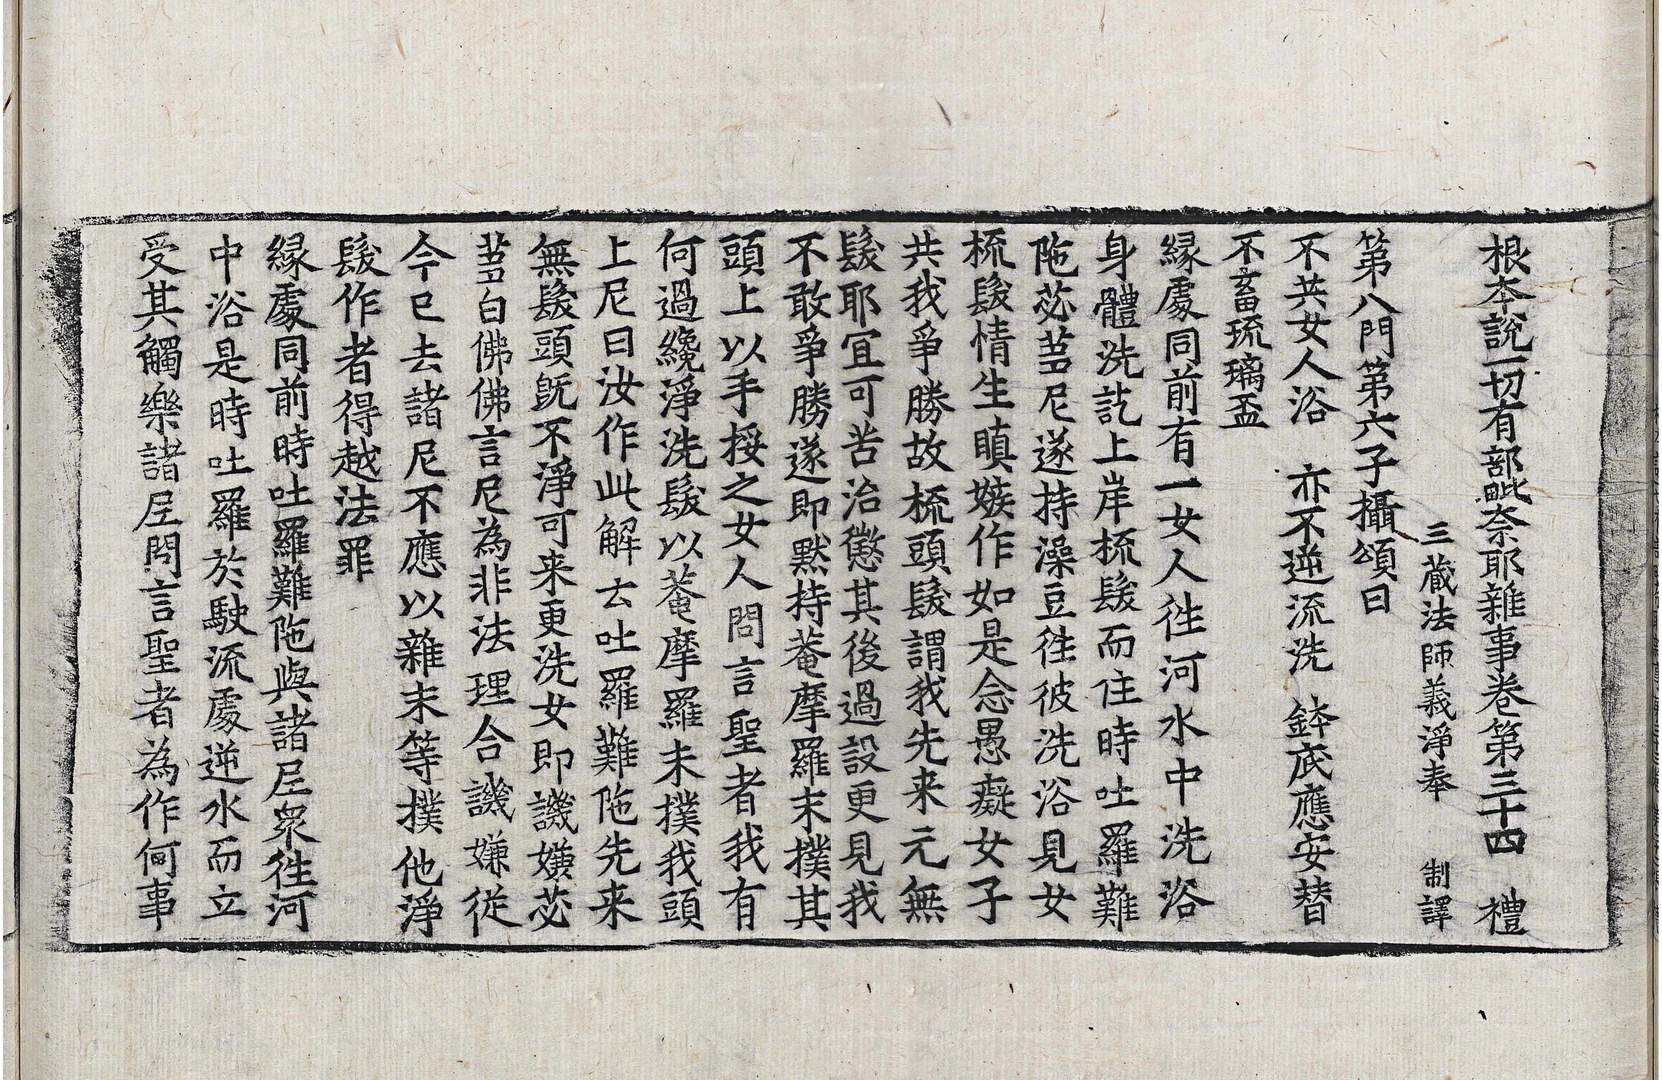 根本說一切有部毗奈耶雜事卷第三十四　禮
三藏法師義淨奉　制譯
第八門第六子攝頌曰
不共女人浴　亦不逆流洗　鉢底應安替
不畜琉璃盃
緣處同前有一女人徃河水中洗浴
身體洗訖上岸梳髮而住時吐羅難
陁苾蒭尼遂持澡豆徃彼洗浴見女
梳髮情生瞋嫉作如是念愚癡女子
共我爭勝故梳頭髮謂我先来元無
髮耶宜可苦治懲其後過設更見我
不敢爭勝遂即默持菴摩羅末撲其
頭上以手挼之女人問言聖者我有
何過纔淨洗髮以菴摩羅末撲我頭
上尼曰汝作此解云吐羅難陁先来
無髮頭旣不淨可来更洗女即譏嫌苾
蒭白佛佛言尼為非法理合譏嫌従
今已去諸尼不應以雜末等撲他淨
髮作者得越法罪
緣處同前時吐羅難陁與諸尼衆徃河
中浴是時吐羅於駛流處逆水而立
受其觸樂諸尼問言聖者為作何事